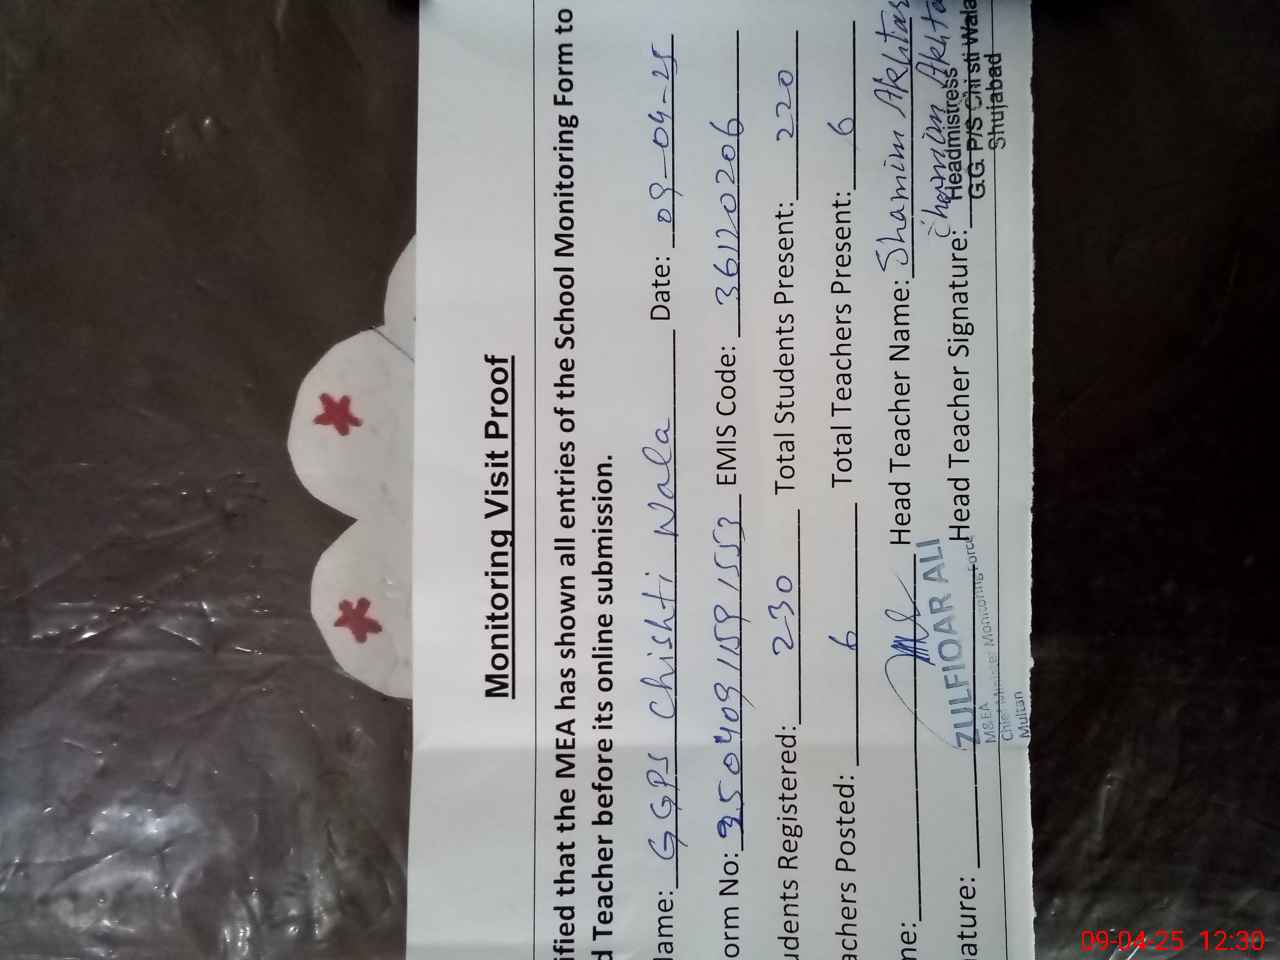 Monitoring Visit Proof
ified that the MEA has shown all entries of the School Monitoring Form to
d Teacher before its online submission.
lame: GGPS Chishti Wala Date: 09-04-25
orm No: 35040911591553 EMIS Code: 36120206
udents Registered: 230 Total Students Present: 220
achers Posted: 6 Total Teachers Present: 6
me: Head Teacher Name: Shamim Akhtar
ature: Head Teacher Signature: Shamim Akhta
ZULFIQAR ALI
M&EA
Chief Minister Monitoring Force
Multan
Headmistress
G.G. P/S Chisti Wala
Shujabad
09-04-25 12:30